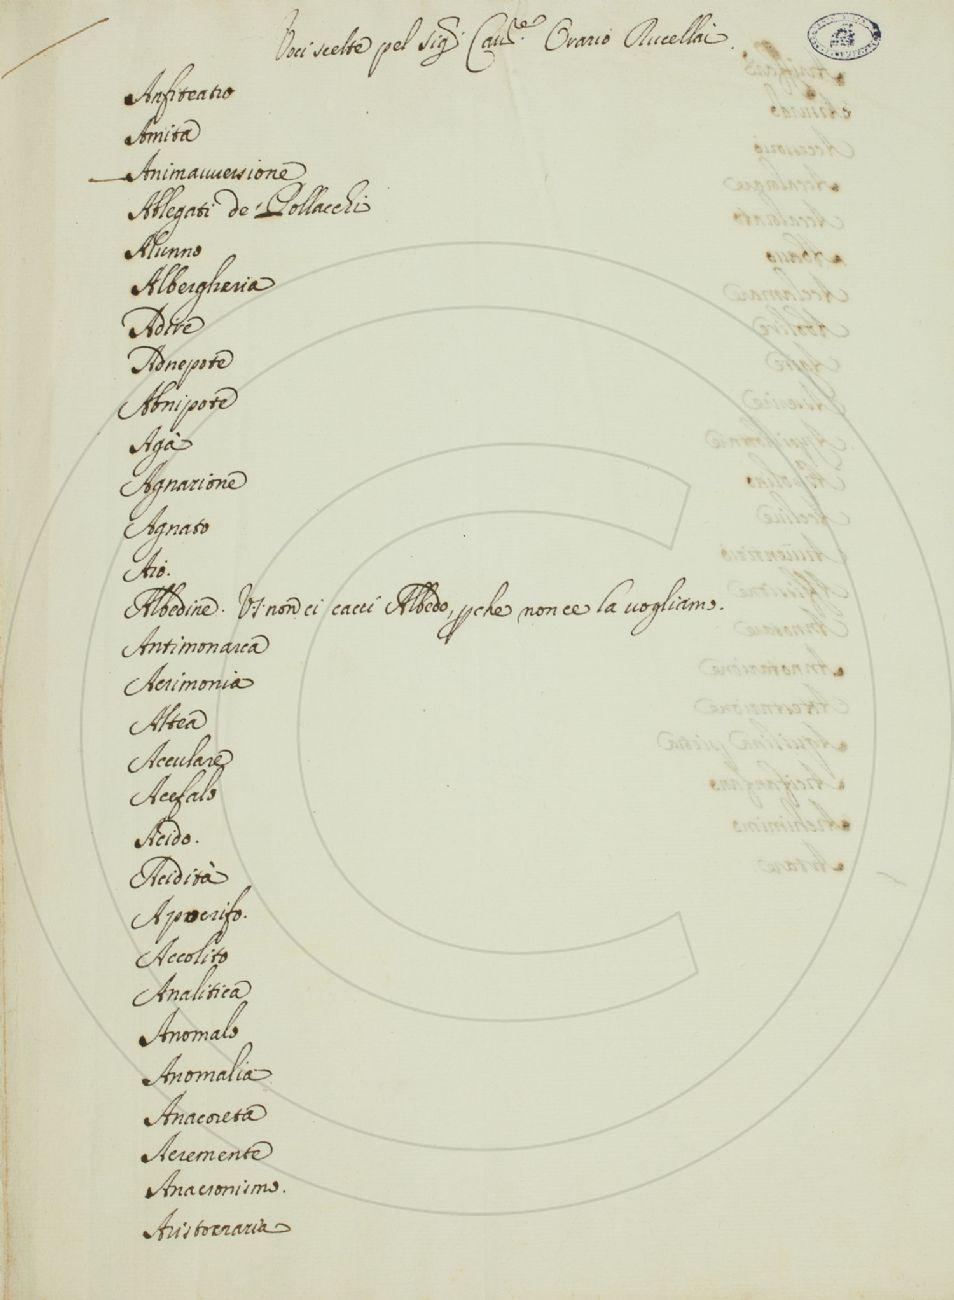 Voci scelte pel Sig.r Cau.re Orazio Rucellai.
Anfiteatro
Amità
Animauuersione
Ablegati de' Pollacchi
Alunno
Albergheria
Adire
Adnepote
Abnipote
Agà
Agnazione
Agnato
Aio.
Albedine. Vs. non ci cacci Albedo, pche non ce la uogliamo.
Antimonarca
Acrimonia
Altea
Acculare
Acefalo
Acido.
Acidità
Apocrifo.
Accolito
Analitica
Anomalo
Anomalia
Anacoreta
Acremente
Anacronismo.
Aristocrazia